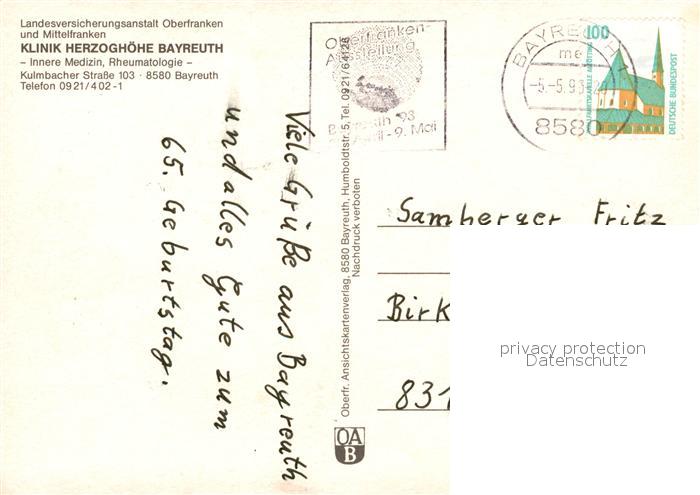 Landesversicherungsanstalt Oberfranken
und Mittelfranken
KLINIK HERZOGHÖHE BAYREUTH
– Innere Medizin, Rheumatologie –
Kulmbacher Straße 103 · 8580 Bayreuth
Telefon 09 21/4 02 -1
Oberfranken-
Ausstellung
Bayreuth '93
- 9. Mai
BAYREUTH 1
-5.-5.93
8580
100
DEUTSCHE BUNDESPOST
Viele Grüße aus Bayreuth
und alles Gute zum
65. Geburtstag.
Oberfr. Ansichtskartenverlag, 8580 Bayreuth, Humboldtstr. 5, Tel. 0921/64126
Nachdruck verboten
OA
B
Samberger Fritz
Birk
831
privacy protection
Datenschutz